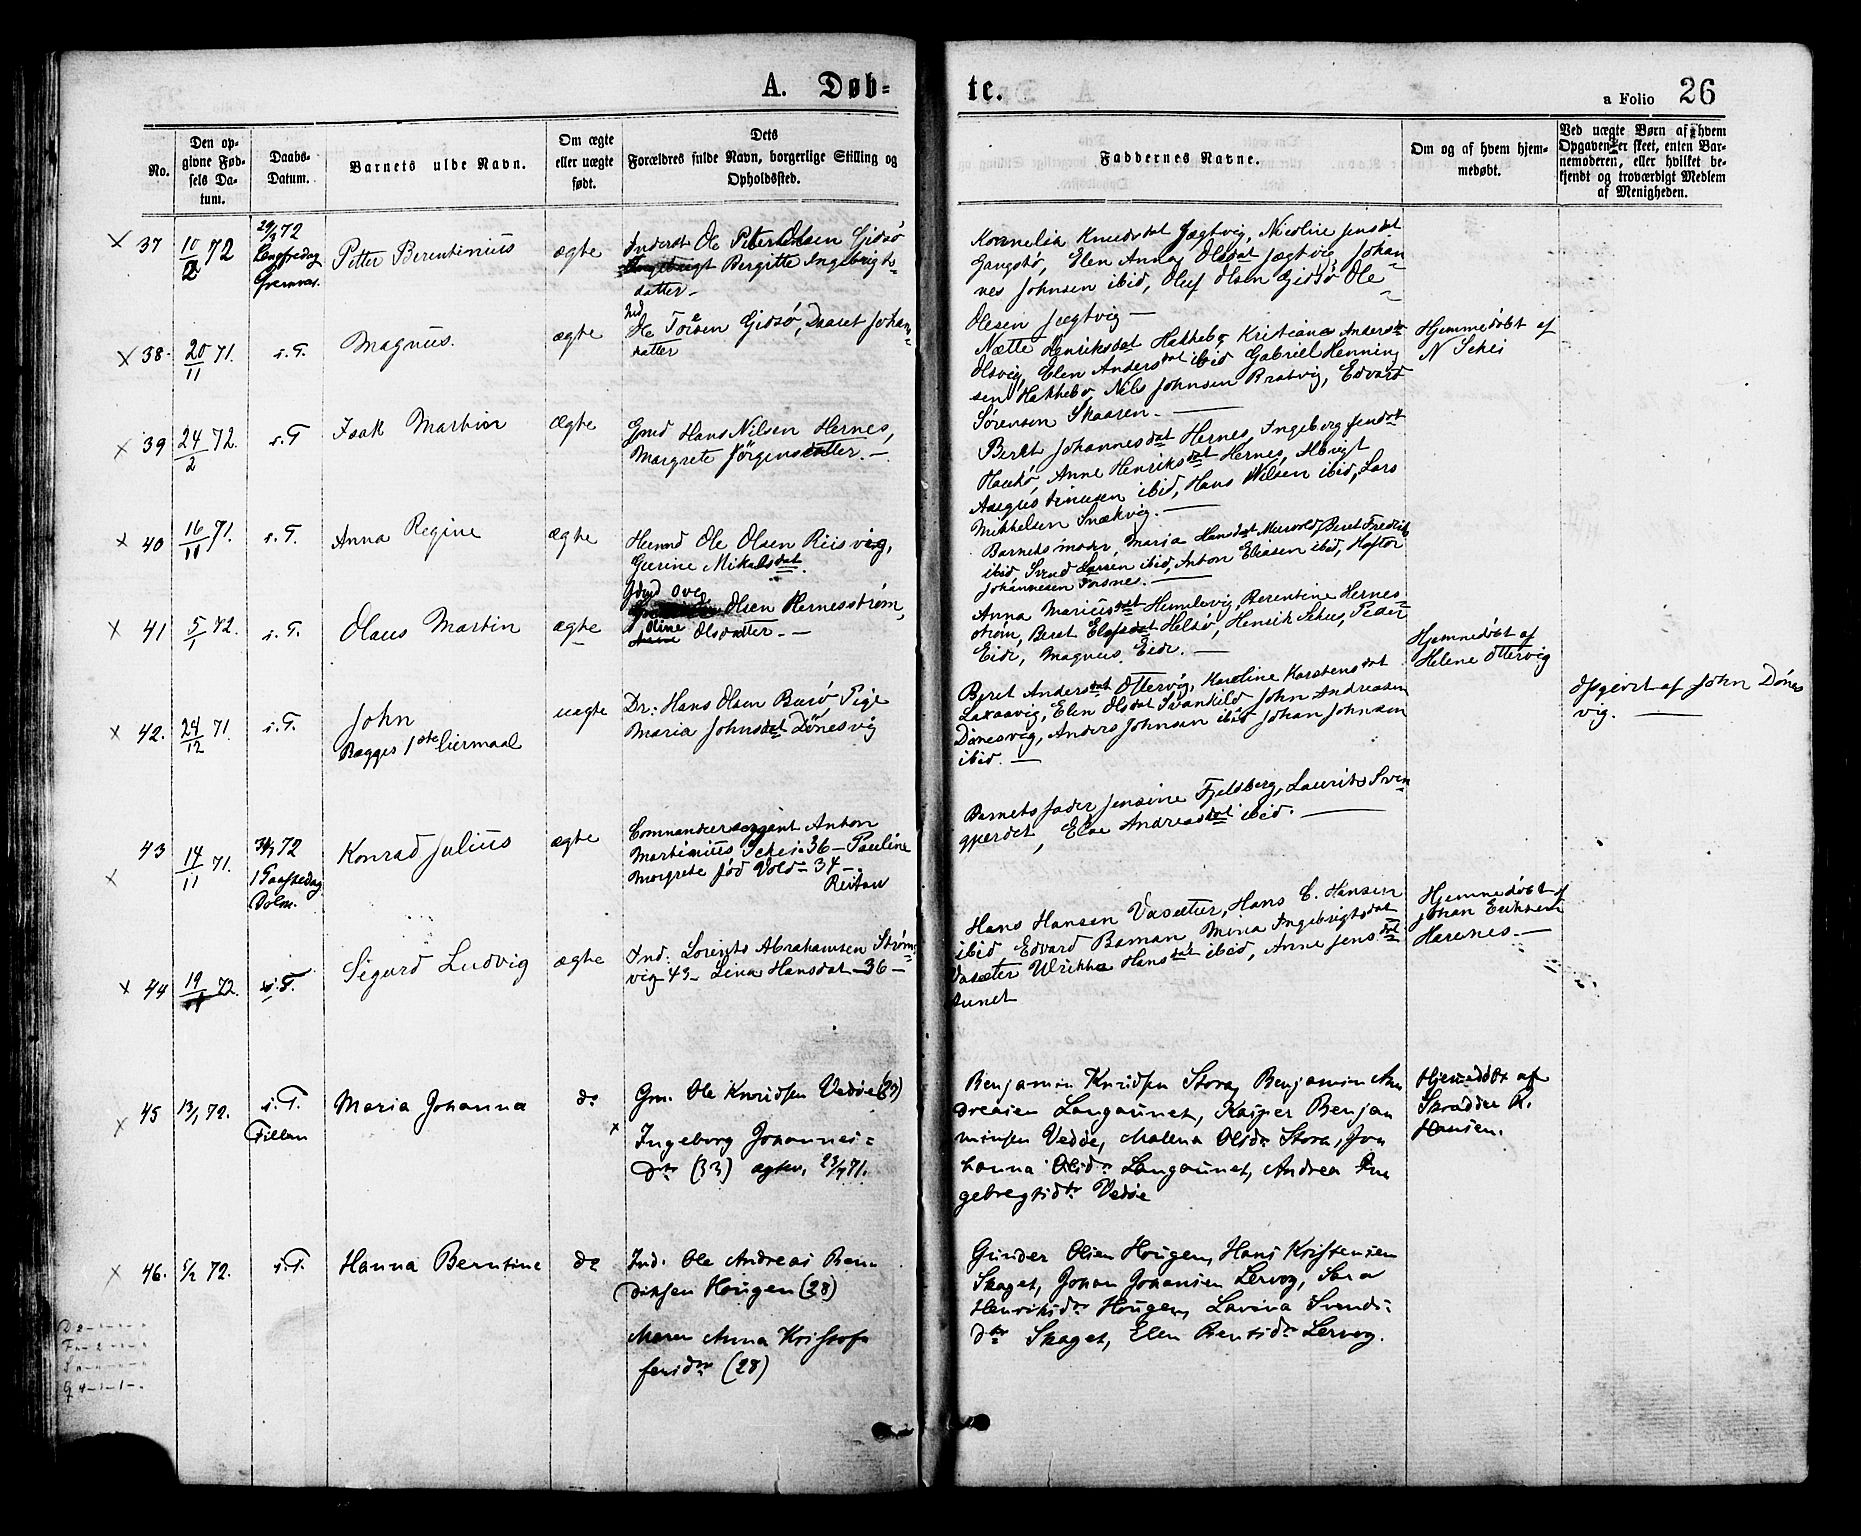 A. Døb-
te.
a Folio 26
No.
Den op-
givne Fød-
sels Da-
tum.
Daabs-
Datum.
Barnets fulde Navn.
Om ægte
eller uægte
født.
Dets
Forældres fulde Navn, borgerlige Stilling og
Opholdssted.
Faddernes Navne.
Om og af hvem hjem-
medøbt.
Ved uægte Børn af hvem
Opgaven er skeet, enten Bar-
nemoderen, eller hvilket be-
kjendt og troværdigt Medlem
af Menigheden.
37
10/2 72
29/3 72
Langfredag
Petter Berentinius
ægte
Inderst Ole Petter Olsen Gjdsø
Bergitte Ingebrigts-
datter-
Kornelia Knudsdat Jægtvig, Nicoline Jensdat
Gangstø, Elen Anna Olsdat Jægtvig, Johan-
nes Johnsen ibid, Oluf Olsen Gjdsø Ole
Olesen Jægtvig-
38.
20/11 71.
s.T.
Magnus.
ægte
Ind
Ole Gjdsø, Johan-
datter
Nætte Henriksdat Hakkebo, Kristiane Andersda
Olsvig, Elen Andersdat ibid Gabriel Henning
sen Hakkebo, Nils Johnsen Bratvig, Edvard
Sørensen Skaaren.
Hjemmedøbt af
N Schei
39
24/2 72.
s.T
Isak Martin
Ægte
Gmd Hans Nilsen Hernes,
Margrete Jörgensdatter.-
Beret Johannesdat Hernes, Ingeborg Jensdat
Anne Henriksdat Hernes, Albrigt
ibid, Hans Nilsen ibid, Lars
Mikkelsen Snækvig.
40
16/11 71.
s.T.
Anna Regine
ægte
Ole Olsen Riisvig,
Gurine Mikalsdat.
Barnets moder, Maria Hansdat Beret Fredrik
ibid, Svend Larsen ibid, Anton Eliasen ibid, Haftor
Johannesen Forsnes.
41
5/1 72.
s.T.
Olaus Martin
ægte
Ove
Olsen Hernesstrøm,
Oline
Olsdatter.-
Anna Mariusdat Humlevig, Berentine Hernes-
strøm, Beret Elefsdat Helsø, Henrik Schei, Peder
Eide, Magnus Eide.-
Hjemmedøbt af
Helene Ottervig
42.
24/12 71.
s.T.
John
Begges 1ste Leiermaal
uægte
Dr: Hans Olsen Busø, Pige
Maria Johnsdat Dönesvig
Beret Andersdat Ottervig, Karoline Karstensdat
Laxaavig, Elen Olsdat Svankild, John Andreasen
Dönesvig, Anders Johnsen ibid Johan Johnsen
ibid.-
Opgivet af John Dönes
vig.
43
14/11 71.
72
1 Paaskedag
Dolm.
Konrad Julius
ægte
Commandeersergent Anton
Martinius Schei 36 - Pauline
Margrete fød Vold - 34 -
Barnets fader Jensine Fjeldberg, Laurits Sven
gjerdet, Else Andreasdat ibid.
44
19/ 72.
s.T.
Sigurd Ludvig
ægte
Ind: Lorents Abrahamsen Strøm-
vig 43 - Lina Hansdat - 36 -
Hans Hansen Vasætter, Hans C. Hansen
ibid Edvard Baman Mina Ingebrigtsdat
Vasæter Ulrikka Hansdat ibid, Anne Jensdat
Hjemmedøbt af
Johan Eriksen
Harenes.-
45
13/1 72.
s.T.
Fillan
Maria Johanna
do
Gm. Ole Knudsen Vedøe (27)
Ingeborg Johannes-
dtr (33) ægtev. 71.
Benjamin Knudsen Stora, Benjamin An
dreasen Langaunet, Kasper Benjam
minsen Vedøe, Malena Olsdr Stora, Jo
hanna Olsdr Langaunet, Andrea In
gebregtsdtr Vedøe
Hjemmedøbt af
Skrædder R.
Hansen.
46.
5/2 72.
s.T.
Hanna Berntine
do
Ind. Ole Andreas Ben-
diksen Hougen (28)
Maren Anna Kristof-
fersdtr (28)
Gunder Olsen Hougen, Hans Kristensen
Skaget, Johan Johansen Lervog, Sara
Henriksdr Hougen, Lavina Svends-
dtr Skaget, Elen Berntsdr Lervog.